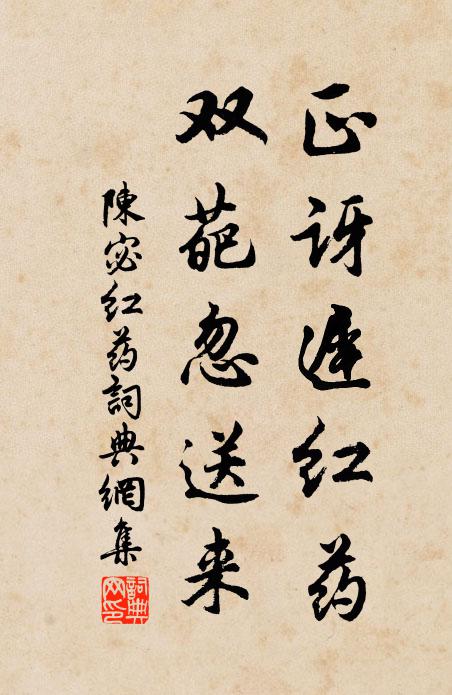 正讶迟红药
双葩忽送来
陳宓红药詞典網集
詞典网印